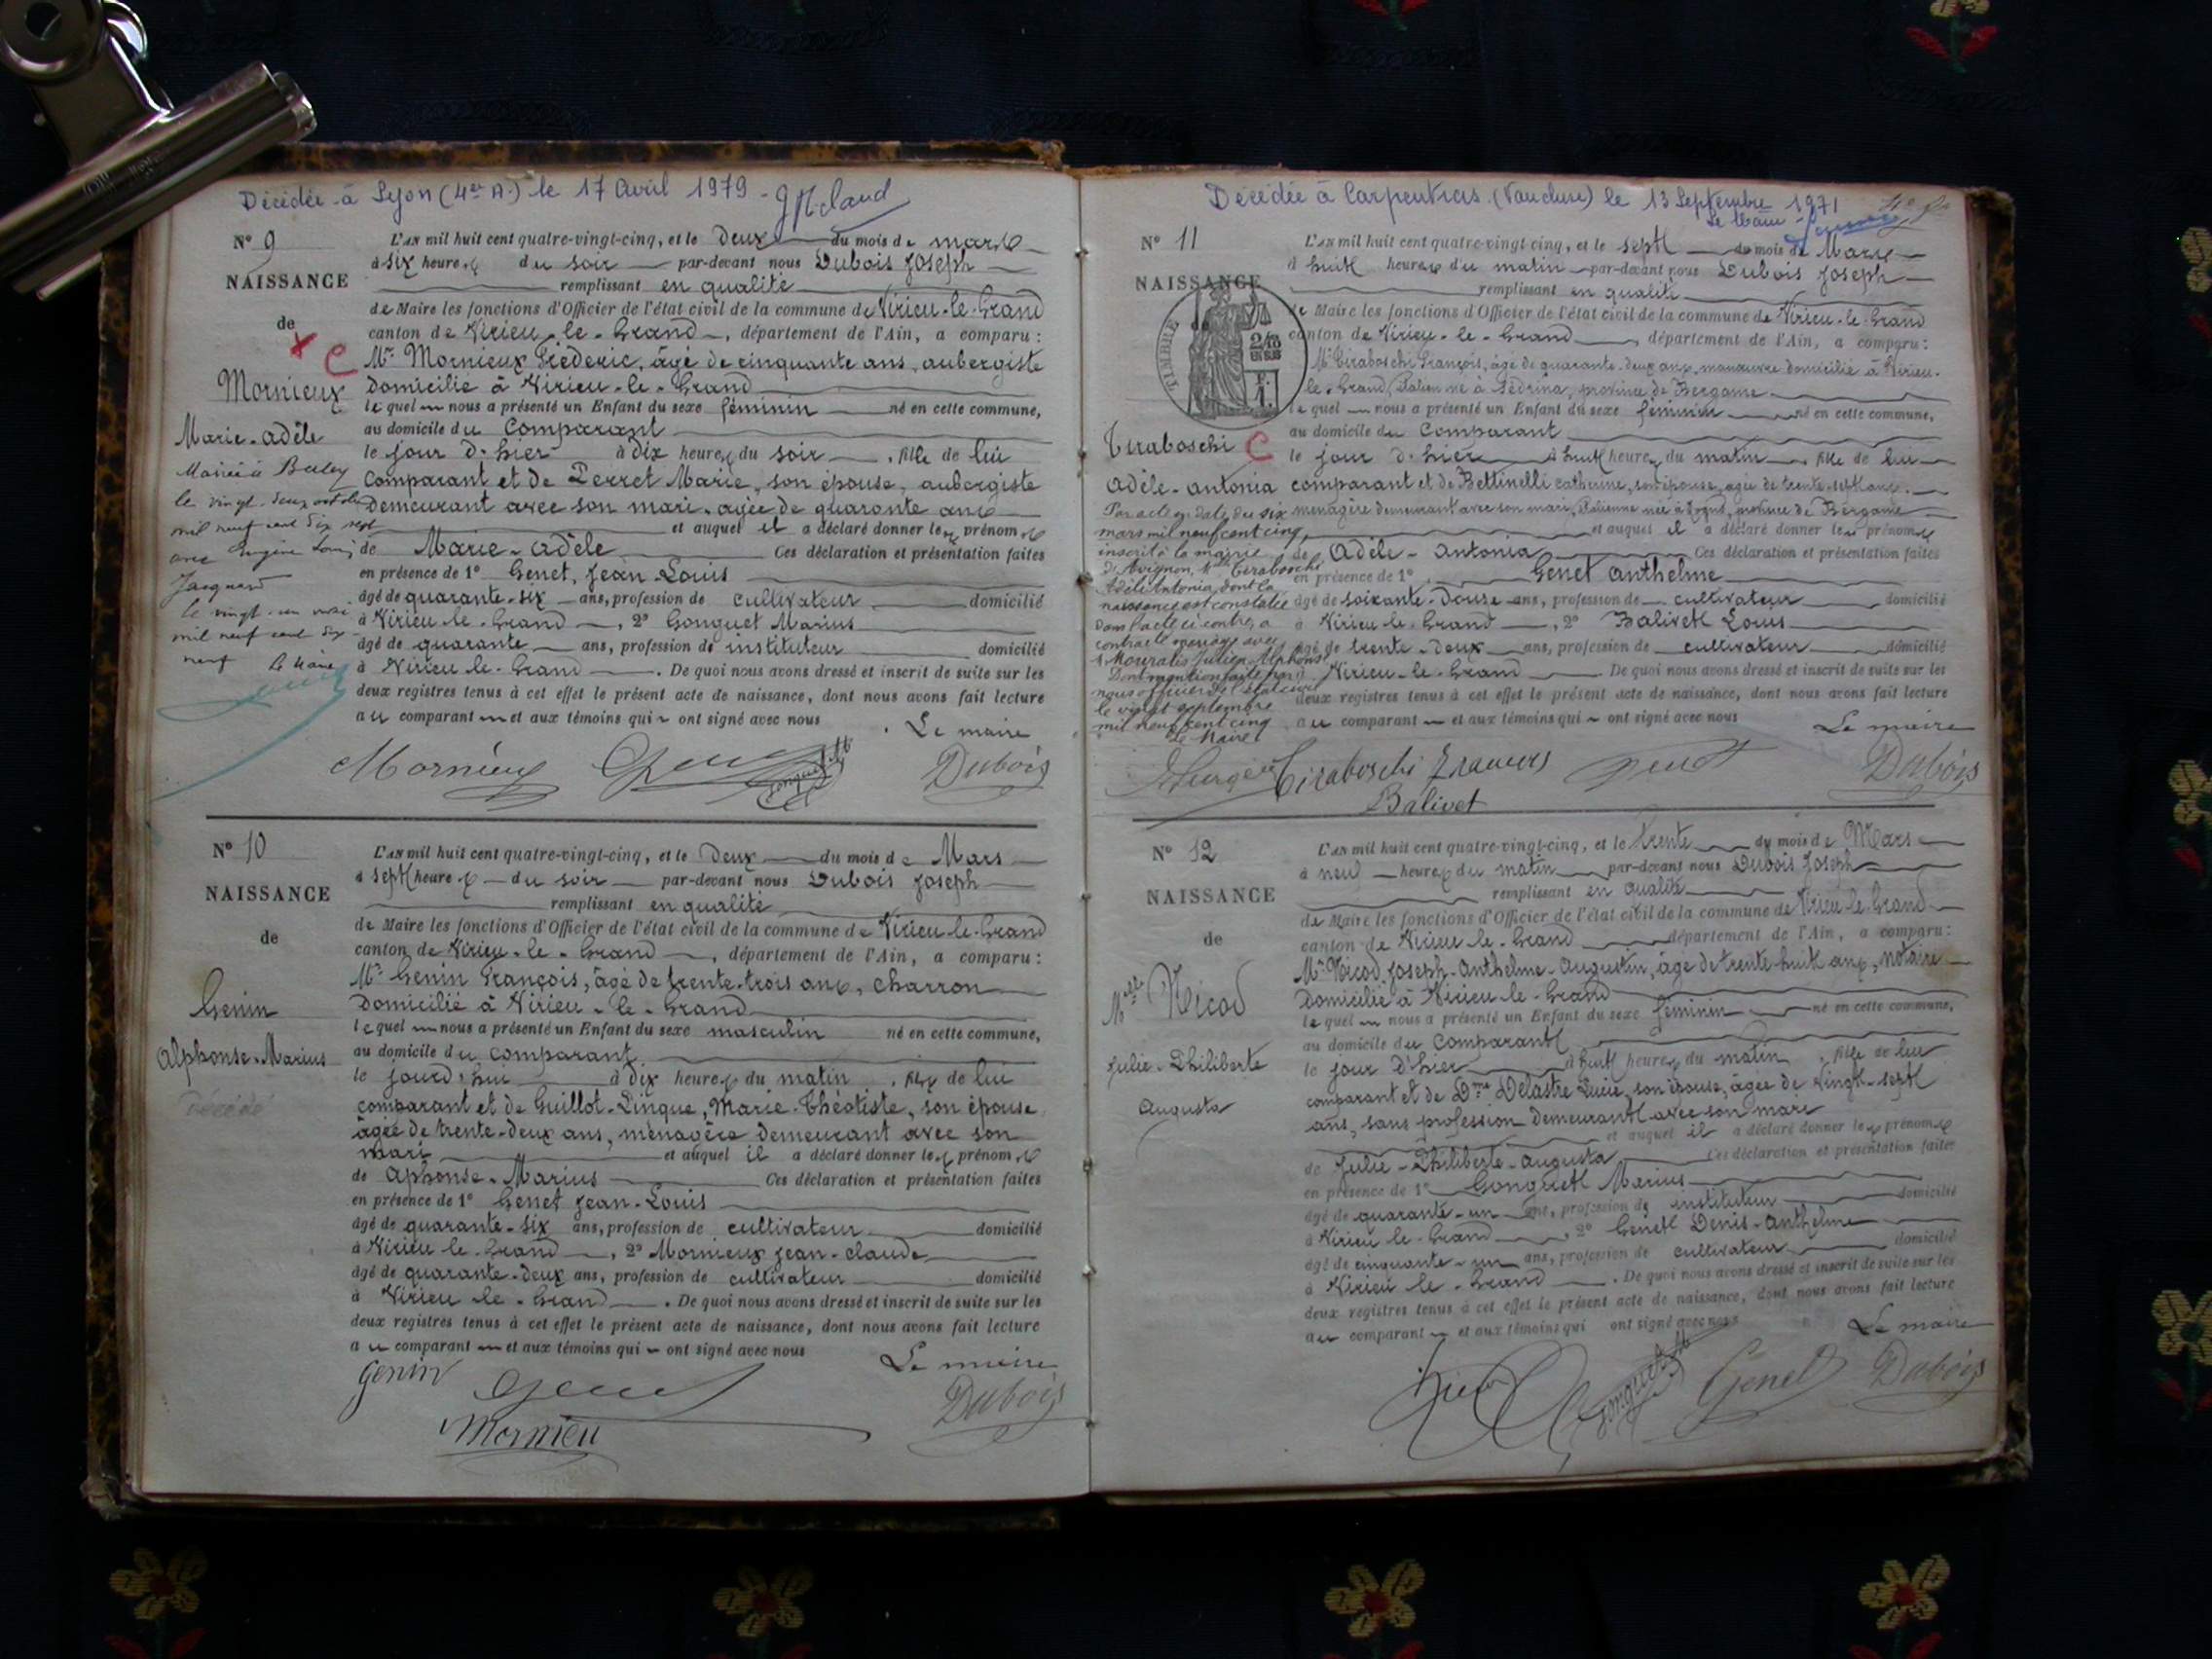 Décédée à Lyon (4e A.) le 17 Avril 1979 -
N° 9
NAISSANCE
de
C
Mornieux
Marie-Adèle
Mariée à Belley
le vingt-deux octobre
mil neuf cent dix sept
avec Eugène Louis
Jacquard
le vingt-un mai
mil neuf cent dix
neuf Le Maire
L'AN mil huit cent quatre-vingt-cinq, et le Deux du mois de mars
à six heures du soir par-devant nous Dubois Joseph
remplissant en qualité
de Maire les fonctions d'Officier de l'état civil de la commune de Virieu-le-Grand
canton de Virieu-le-Grand, département de l'Ain, a comparu :
Mr Mornieux Fréderic, âgé de cinquante ans, aubergiste
Domicilié à Virieu-le-Grand
lequel nous a présenté un Enfant du sexe féminin né en cette commune,
au domicile du Comparant
le jour d'hier à dix heures du soir, fille de lui
comparant et de Perret Marie, son épouse, aubergiste
demeurant avec son mari, agée de quarante ans
et auquel il a déclaré donner les prénoms
de Marie-Adèle Ces déclaration et présentation faites
en présence de 1° Genet, Jean-Louis
âgé de quarante-six ans, profession de cultivateur domicilié
à Virieu-le-Grand, 2° Gonguet Marius
âgé de quarante ans, profession de instituteur domicilié
à Virieu-le-Grand. De quoi nous avons dressé et inscrit de suite sur les
deux registres tenus à cet effet le présent acte de naissance, dont nous avons fait lecture
au comparant et aux témoins qui ont signé avec nous
Le maire
Mornieux Dubois
N° 10
NAISSANCE
de
Genin
Alphonse-Marius
Décédé
L'AN mil huit cent quatre-vingt-cinq, et le Deux du mois de Mars
à sept heures du soir par-devant nous Dubois Joseph
remplissant en qualité
de Maire les fonctions d'Officier de l'état civil de la commune de Virieu-le-Grand
canton de Virieu-le-Grand, département de l'Ain, a comparu :
Mr Genin François, âgé de trente-trois ans, charron
Domicilié à Virieu-le-Grand
lequel nous a présenté un Enfant du sexe masculin né en cette commune,
au domicile du comparant
le jourd'hui à dix heures du matin, fils de lui
comparant et de Guillot-Pingue, Marie-Théotiste, son épouse
âgée de trente-deux ans, ménagère demeurant avec son
mari et auquel il a déclaré donner les prénoms
de Aphonse-Marius Ces déclaration et présentation faites
en présence de 1° Genet Jean-Louis
âgé de quarante-six ans, profession de cultivateur domicilié
à Virieu le-Grand, 2° Mornieux Jean-Claude
âgé de quarante-deux ans, profession de cultivateur domicilié
à Virieu-le-Grand. De quoi nous avons dressé et inscrit de suite sur les
deux registres tenus à cet effet le présent acte de naissance, dont nous avons fait lecture
au comparant et aux témoins qui ont signé avec nous
Genin Le maire
Mornieu Dubois
Décédée à Carpentras (Vaucluse) le 13 Septembre 1971
Le Maire
N° 11
NAISSANCE
TIMBRE
2/10 EN SUS
Tiraboschi C
Adèle-Antonia
Par acte en date du six
mars mil neuf cent cinq,
inscrit à la mairie
d'Avignon, Mlle Tiraboschi
Adèle Antonia, dont la
naissance est constatée
dans l'acte ci contre, a
contracté mariage avec
M. Mouralis Julien Alphonse
Dont mention faite par
nous officier de l'état civil
le vingt septembre
mil neuf cent cinq
Le Maire
L'AN mil huit cent quatre-vingt-cinq, et le sept du mois de Mars
à huit heures du matin par-devant nous Dubois Joseph
remplissant en qualité
de Maire les fonctions d'Officier de l'état civil de la commune de Virieu-le-Grand
canton de Virieu-le-Grand, département de l'Ain, a comparu :
Mr Tiraboschi François, âgé de quarante-deux ans, manœuvre domicilié à Virieu-
le-Grand, Italien né à Sédrina, province de Bergame
lequel nous a présenté un Enfant du sexe féminin né en cette commune,
au domicile du Comparant
le jour d'hier à huit heures du matin, fille de lui
comparant et de Bettinelli Catherine, son épouse, agée de trente-sept ans,
ménagère demeurant avec son mari, Italienne née à Zogno, province de Bergame
et auquel il a déclaré donner les prénoms
de Adèle-Antonia Ces déclaration et présentation faites
en présence de 1° Genet Anthelme
âgé de soixante-douze ans, profession de cultivateur domicilié
à Virieu le-Grand, 2° Balivet Louis
âgé de trente-deux ans, profession de cultivateur domicilié
à Virieu-le-Grand De quoi nous avons dressé et inscrit de suite sur les
deux registres tenus à cet effet le présent acte de naissance, dont nous avons fait lecture
au comparant et aux témoins qui ont signé avec nous
Le maire
Tiraboschi Dubois
Balivet
N° 12
NAISSANCE
de
Mlle Nicod
Julie-Philiberte
Augusta
L'AN mil huit cent quatre-vingt-cinq, et le trente du mois de Mars
à neuf heures du matin par-devant nous Dubois Joseph
remplissant en qualité
de Maire les fonctions d'Officier de l'état civil de la commune de Virieu-le-Grand
canton de Virieu-le-Grand département de l'Ain, a comparu :
Mr Nicod Joseph-Anthelme-Augustin, âgé de trente-huit ans, notaire
Domicilié à Virieu-le-Grand
lequel nous a présenté un Enfant du sexe féminin né en cette commune,
au domicile du Comparant
le jour d'hier à huit heures du matin, fille de lui
comparant et de Dme Delastre Lucie, son épouse, âgée de vingt-sept
ans, sans profession demeurant avec son mari
et auquel il a déclaré donner les prénoms
de Julie-Philiberte-Augusta Ces déclaration et présentation faites
en présence de 1° Gonguet Marius
âgé de quarante-un ans, profession de instituteur domicilié
à Virieu le-Grand, 2° Genet Denis-Anthelme
âgé de cinquante-un ans, profession de cultivateur domicilié
à Virieu-le-Grand. De quoi nous avons dressé et inscrit de suite sur les
deux registres tenus à cet effet le présent acte de naissance, dont nous avons fait lecture
au comparant et aux témoins qui ont signé avec nous
Le maire
Genet Dubois